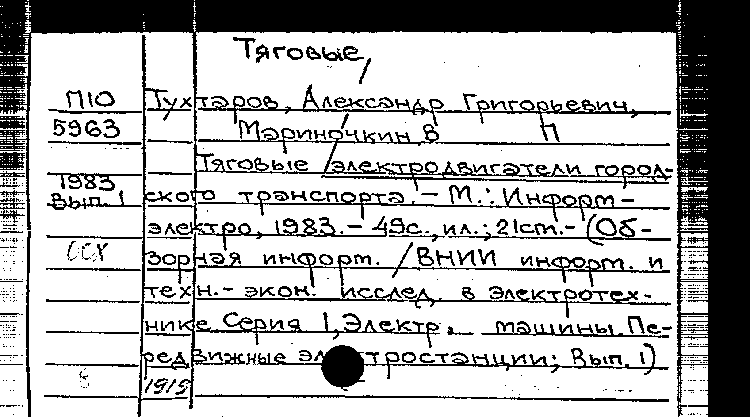 Тяговые
П10 Тухтаров, Александр Григорьевич,
5963 Мариночкин В П
Тяговые /электродвигатели город-
1983
вып. 1 ского транспорта. – М.: Информ-
электро, 1983. – 49с., ил.; 21см. – (Об-
зорная информ. / ВНИИ информ. и
техн.- экон. исслед. в электротех-
нике Серия 1, Электр. машины. Пе-
редвижные эл тростанции; Вып. 1)